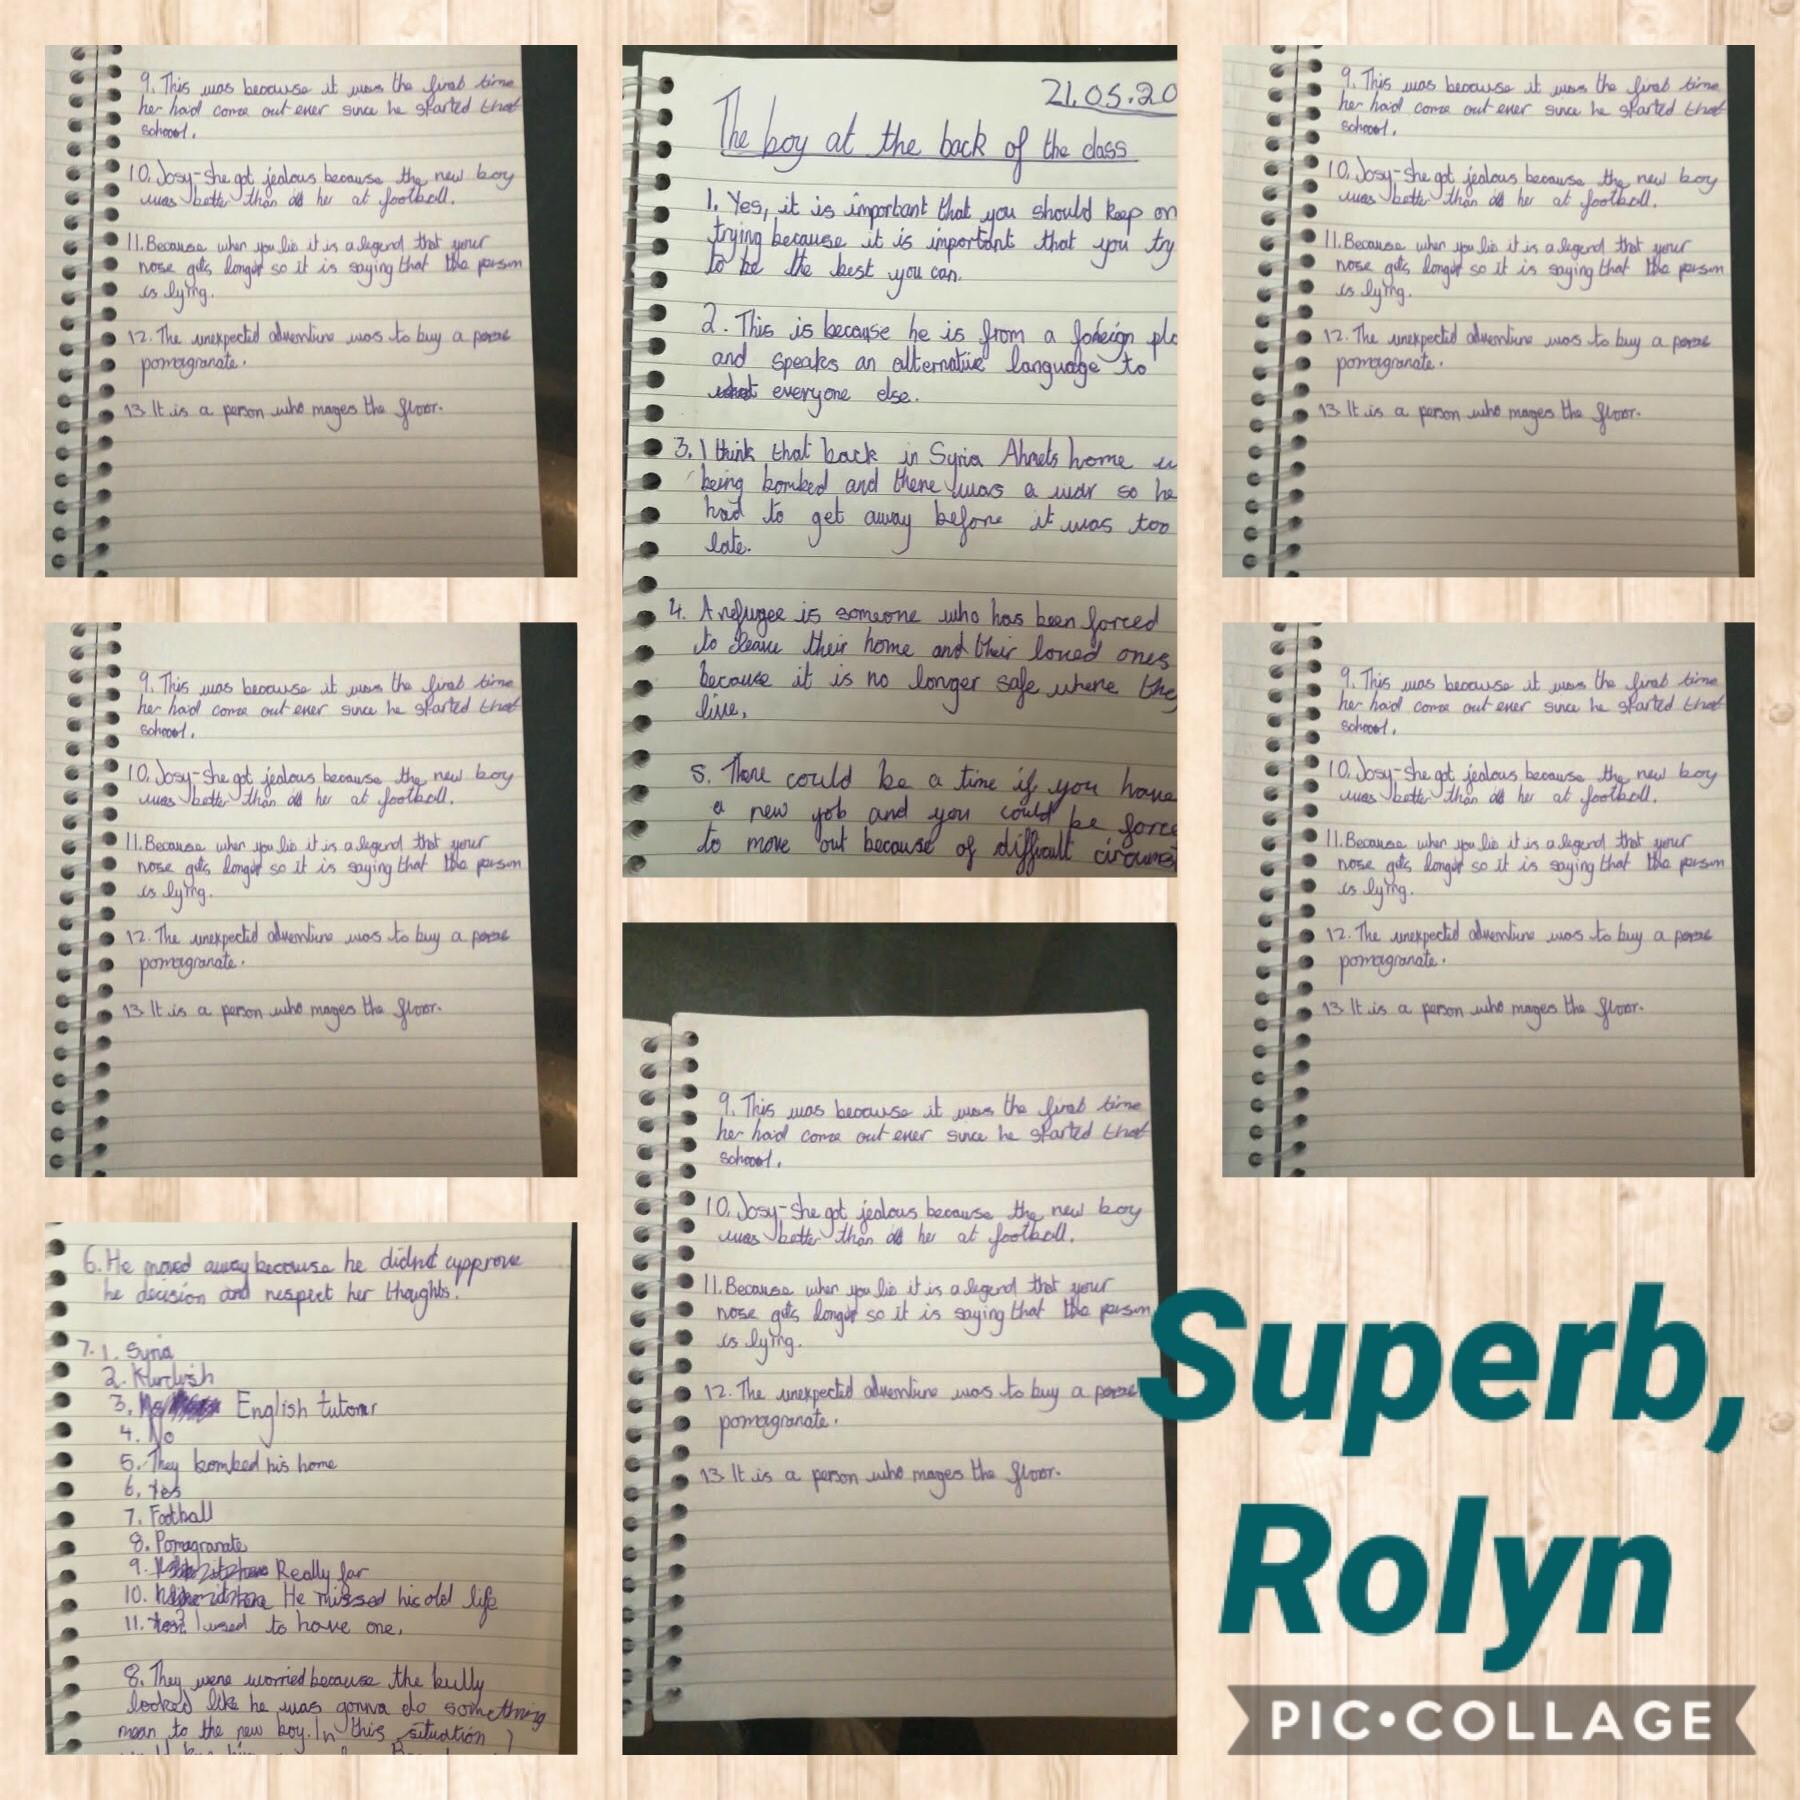 9. This was because it was the first time
her had come out ever since he started that
school.
10. Josy-she got jealous because the new boy
was better than her at football.
11. Because when you lie it is a legend that your
nose gets longer so it is saying that the person
is lying.
12. The unexpected adventure was to buy a
pomagranate.
13. It is a person who mages the floor.
21.05.20
The boy at the back of the class
1. Yes, it is important that you should keep on
trying because it is important that you try
to be the best you can.
2. This is because he is from a foreign pla
and speaks an alternative language to
what everyone else.
3. I think that back in Syria Ahmets home
being bombed and there was a war so he
had to get away before it was too
late.
4. A refugee is someone who has been forced
to leave their home and their loved ones
because it is no longer safe where the
live.
5. There could be a time if you have
a new job and you could be force
to move out because of difficult circums
9. This was because it was the first time
her had come out ever since he started that
school.
10. Josy-she got jealous because the new boy
was better than her at football.
11. Because when you lie it is a legend that your
nose gets longer so it is saying that the person
is lying.
12. The unexpected adventure was to buy a
pomagranate.
13. It is a person who mages the floor.
9. This was because it was the first time
her had come out ever since he started that
school.
10. Josy-she got jealous because the new boy
was better than her at football.
11. Because when you lie it is a legend that your
nose gets longer so it is saying that the person
is lying.
12. The unexpected adventure was to buy a
pomagranate.
13. It is a person who mages the floor.
9. This was because it was the first time
her had come out ever since he started that
school.
10. Josy-she got jealous because the new boy
was better than her at football.
11. Because when you lie it is a legend that your
nose gets longer so it is saying that the person
is lying.
12. The unexpected adventure was to buy a
pomagranate.
13. It is a person who mages the floor.
6. He moved away because he didnt approve
he decision and respect her thoughts.
7. 1. Syria
2. Kurdish
3. English tutor
4. No
5. They bombed his home
6. Yes
7. Football
8. Pomagranate
9. Really far
10. He missed his old life
11. I used to have one.
8. They were worried because the bully
looked like he was gonna do something
mean to the new boy. In this situation I
9. This was because it was the first time
her had come out ever since he started that
school.
10. Josy-she got jealous because the new boy
was better than her at football.
11. Because when you lie it is a legend that your
nose gets longer so it is saying that the person
is lying.
12. The unexpected adventure was to buy a
pomagranate.
13. It is a person who mages the floor.
Superb,
Rolyn
PIC•COLLAGE